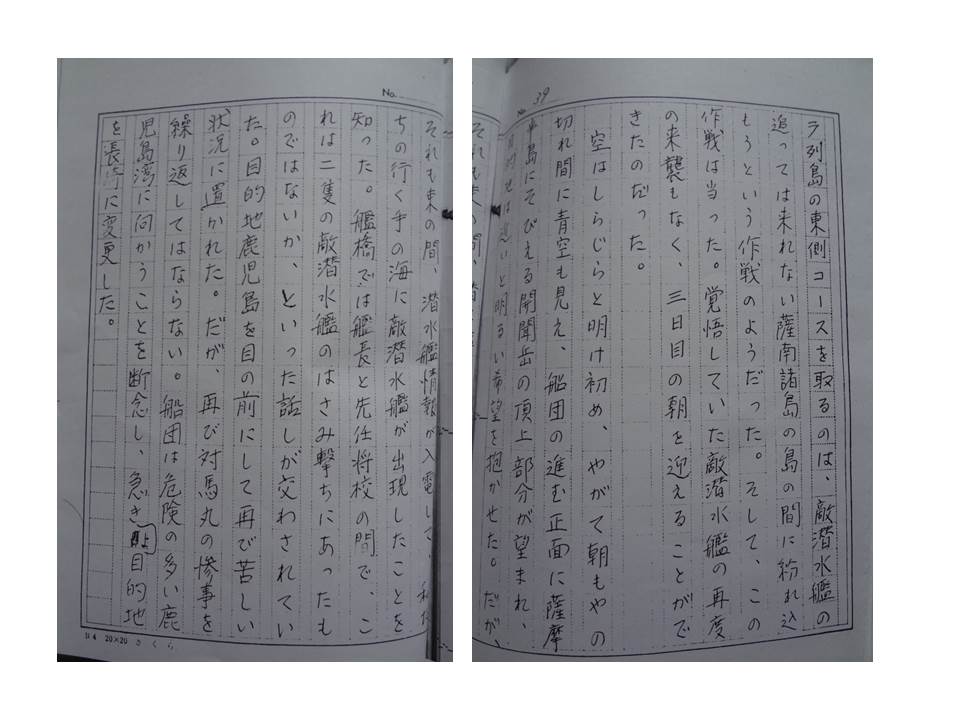 No. 39
ラ列島の東側コースを取るのは、敵潜水艦の
追っては来れない薩南諸島の島の間に紛れ込
もうという作戦のようだった。そして、この
作戦は当った。覚悟していた敵潜水艦の再度
の来襲もなく、三日目の朝を迎えることがで
きたのだった。
空はしらじらと明け初め、やがて朝もやの
切れ間に青空も見え、船団の進む正面に薩摩
半島にそびえる開聞岳の頂上部分が望まれ、
目的地は近いと明るい希望を抱かせた。だが、
No.
それも束の間、潜水艦情報が入電して、私た
ちの行く手の海に敵潜水艦が出現したことを
知った。艦橋では艦長と先任将校の間で、こ
れは二隻の敵潜水艦のはさみ撃ちにあったも
のではないか、といった話しが交わされてい
た。目的地鹿児島を目の前にして再び苦しい
状況に置かれた。だが、再び対馬丸の惨事を
繰り返してはならない。船団は危険の多い鹿
児島湾に向かうことを断念し、急ぎ目的地
を長崎に変更した。
B4 20×20 さくら